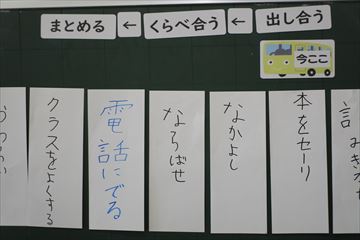 出し合う
←
くらべ合う
←
まとめる
今ここ
本をセーリ
なかよし
ならばせ
電話にでる
クラスをよくする